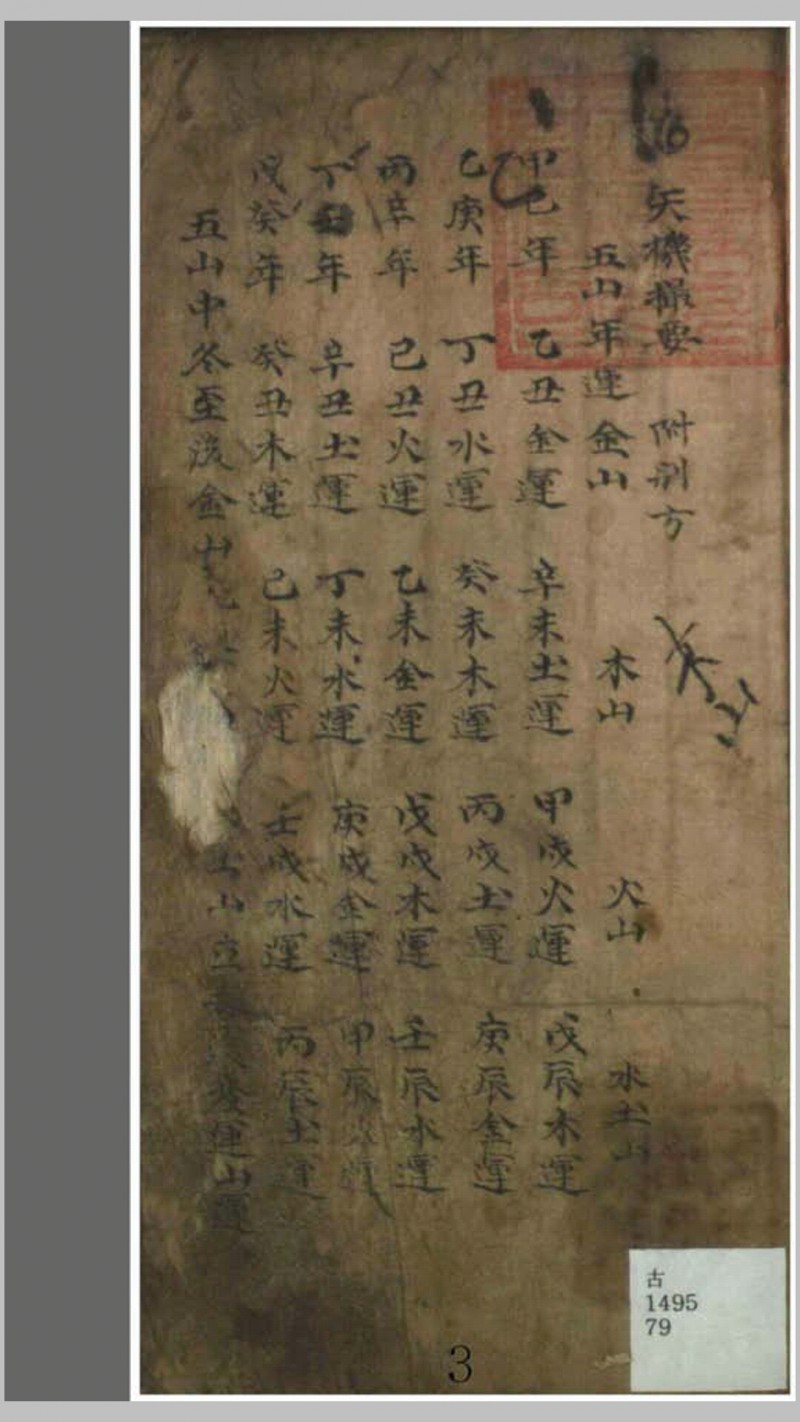 矢機撮要 附別方
五山年運 金山 木山 火山 水土山
甲己年 乙丑金運 辛未土運 甲戌火運 戊辰木運
乙庚年 丁丑水運 癸未木運 丙戌土運 庚辰金運
丙辛年 己丑火運 乙未金運 戊戌木運 壬辰水運
丁壬年 辛丑土運 丁未水運 庚戌金運 甲辰 運
戊癸年 癸丑木運 己未火運 壬戌水運 丙辰土運
五山中冬至後金山 山立 變運山運
古
1495
79
3